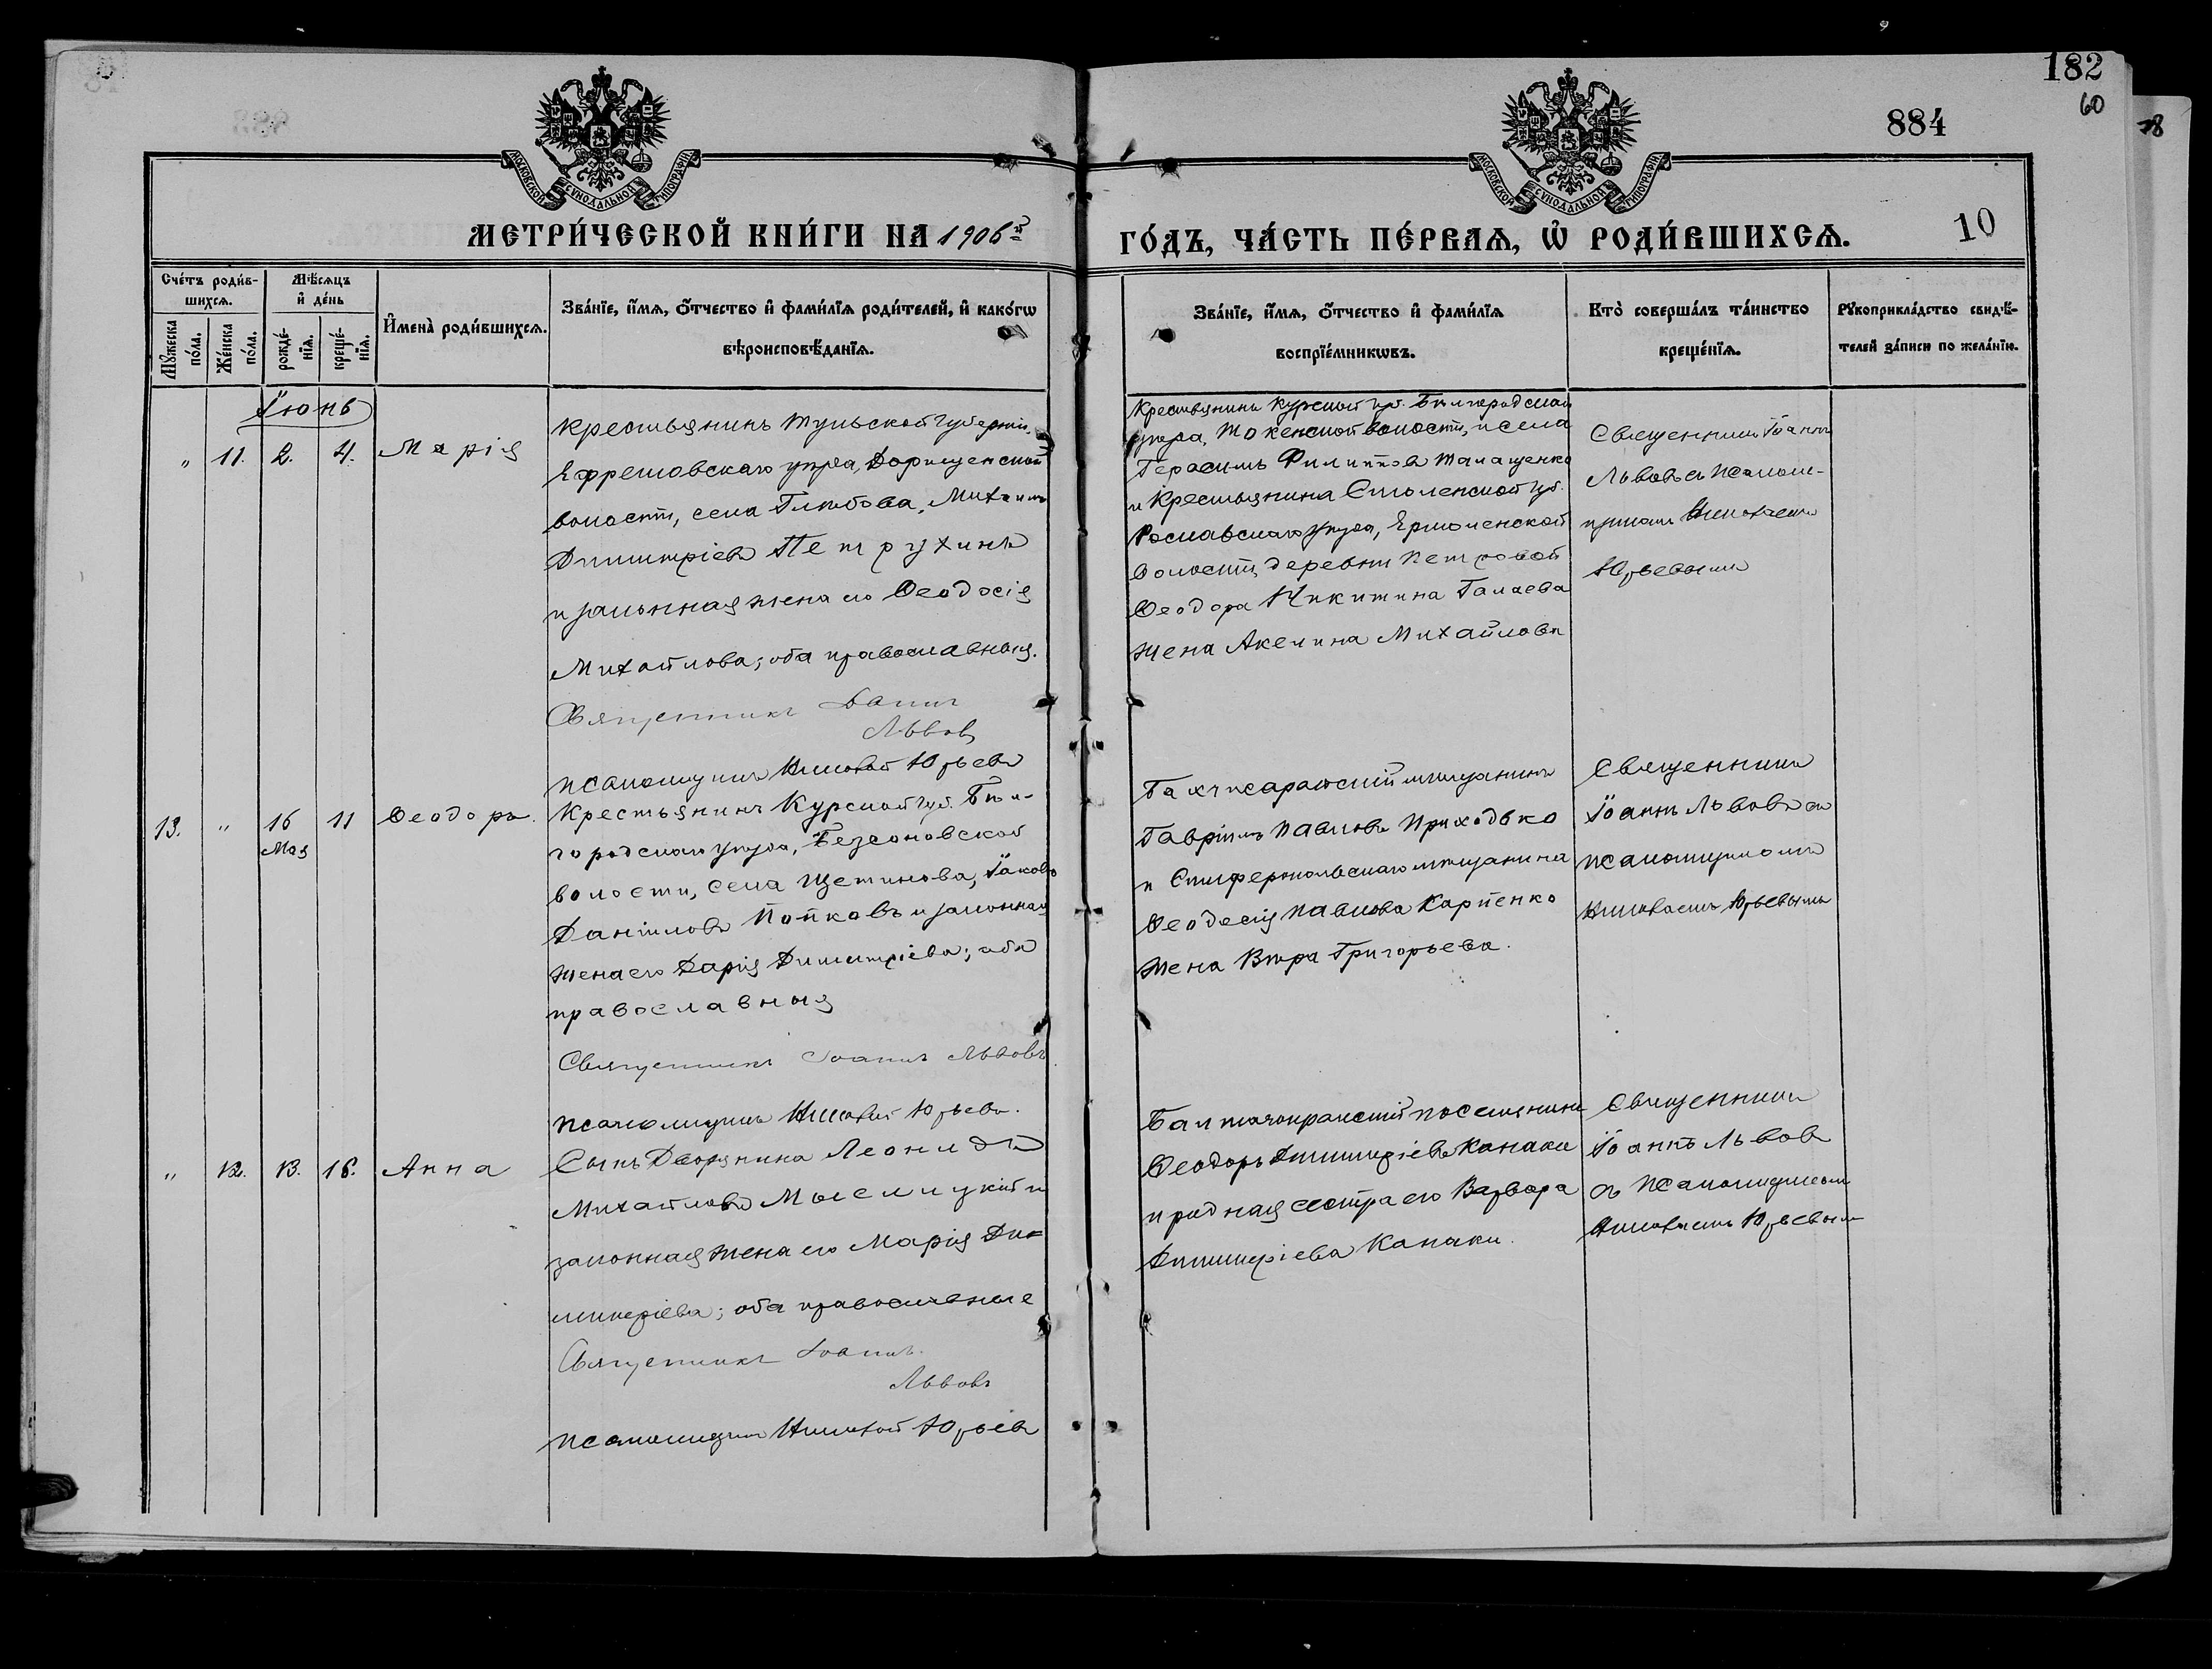 182
60
884
78
МОСКОВСКОЙ СѴНОДАЛЬНОЙ ТИПОГРАФІИ
МОСКОВСКОЙ СѴНОДАЛЬНОЙ ТИПОГРАФІИ
МЕТРИ́ЧЕСКОЙ КНИ́ГИ НА 1906й
ГО́ДЪ, ЧА́СТЬ ПЕ́РВАЯ, Ѡ҆ РОДИ́ВШИХСЯ.
10
Сче́тъ роди́в-
шихся.
Мꙋжеска по́ла.
Же́нска по́ла.
Мѣ́сяцъ
и҆ де́нь
рожде́-
нїя.
креще́-
нїя.
И҆мена̀ роди́вшихся.
Зва́нїе, и҆́мя, о҆́тчество и҆ фами́лїя роди́телей, и҆ како́гѡ
вѣроисповѣ́данїя.
Зва́нїе, и҆́мя, о҆́тчество и҆ фами́лїя
воспрїе́мникѡвъ.
Кто̀ соверша́лъ та́инство
креще́нїя.
Рꙋкоприкла́дство свидѣ́-
телей за́писи по жела́нїю.
Іюнь
" 11. 2. 4. Марія
Крестьянинъ Тульской губерніи,
Ефремовскаго уѣзда, Дорищенской
волости, села Глѣбова, Михаилъ
Димитріевъ Петрухинъ
и законная жена его Ѳеодосія
Михайлова; оба православныя.
Священникъ Іоаннъ
Львовъ
псаломщикъ Николай Юрьевъ
Крестьянинъ Курской губ. Бѣлгородской
уѣзда, волости, и села
Герасимъ Филипповъ Талащенко
и Крестьянина Смоленской губ.
Рославскаго уѣзда, Ермоленской
волости, деревни Петровой
Ѳеодора Никитина Галаева
жена Акелина Михайлова
Священникъ Іоаннъ
Львовъ съ псалом-
щикомъ Николаемъ
Юрьевымъ
13. " 16 11 Ѳеодоръ.
Мая
Крестьянинъ Курской губ. Бѣл-
городскаго уѣзда, Безсоновской
волости, села Щетинова, Іаковъ
Даніиловъ Попковъ и законная
жена его Дарія Димитріева; оба
православныя
Священникъ Іоаннъ Львовъ
псаломщикъ Николай Юрьевъ.
Бахчисарайскій мѣщанинъ
Гавріилъ Павловъ Приходько
и Симферопольскаго мѣщанина
Ѳеодосія Павлова Карпенко
жена Вѣра Григорьева.
Священникъ
Іоаннъ Львовъ съ
псаломщикомъ
Николаемъ Юрьевымъ
" 12. 13. 16. Анна
Сынъ Дворянина Леонидъ
Михайловъ Мыслицкій и
законная жена его Марія Ди-
митріева; оба православные
Священникъ Іоаннъ
Львовъ
псаломщикъ Николай Юрьевъ
поселянинъ
Ѳеодоръ Димитріевъ Канаки
и родная сестра его Варвара
Димитріева Канаки.
Священникъ
Іоаннъ Львовъ
съ псаломщикомъ
Николаемъ Юрьевымъ